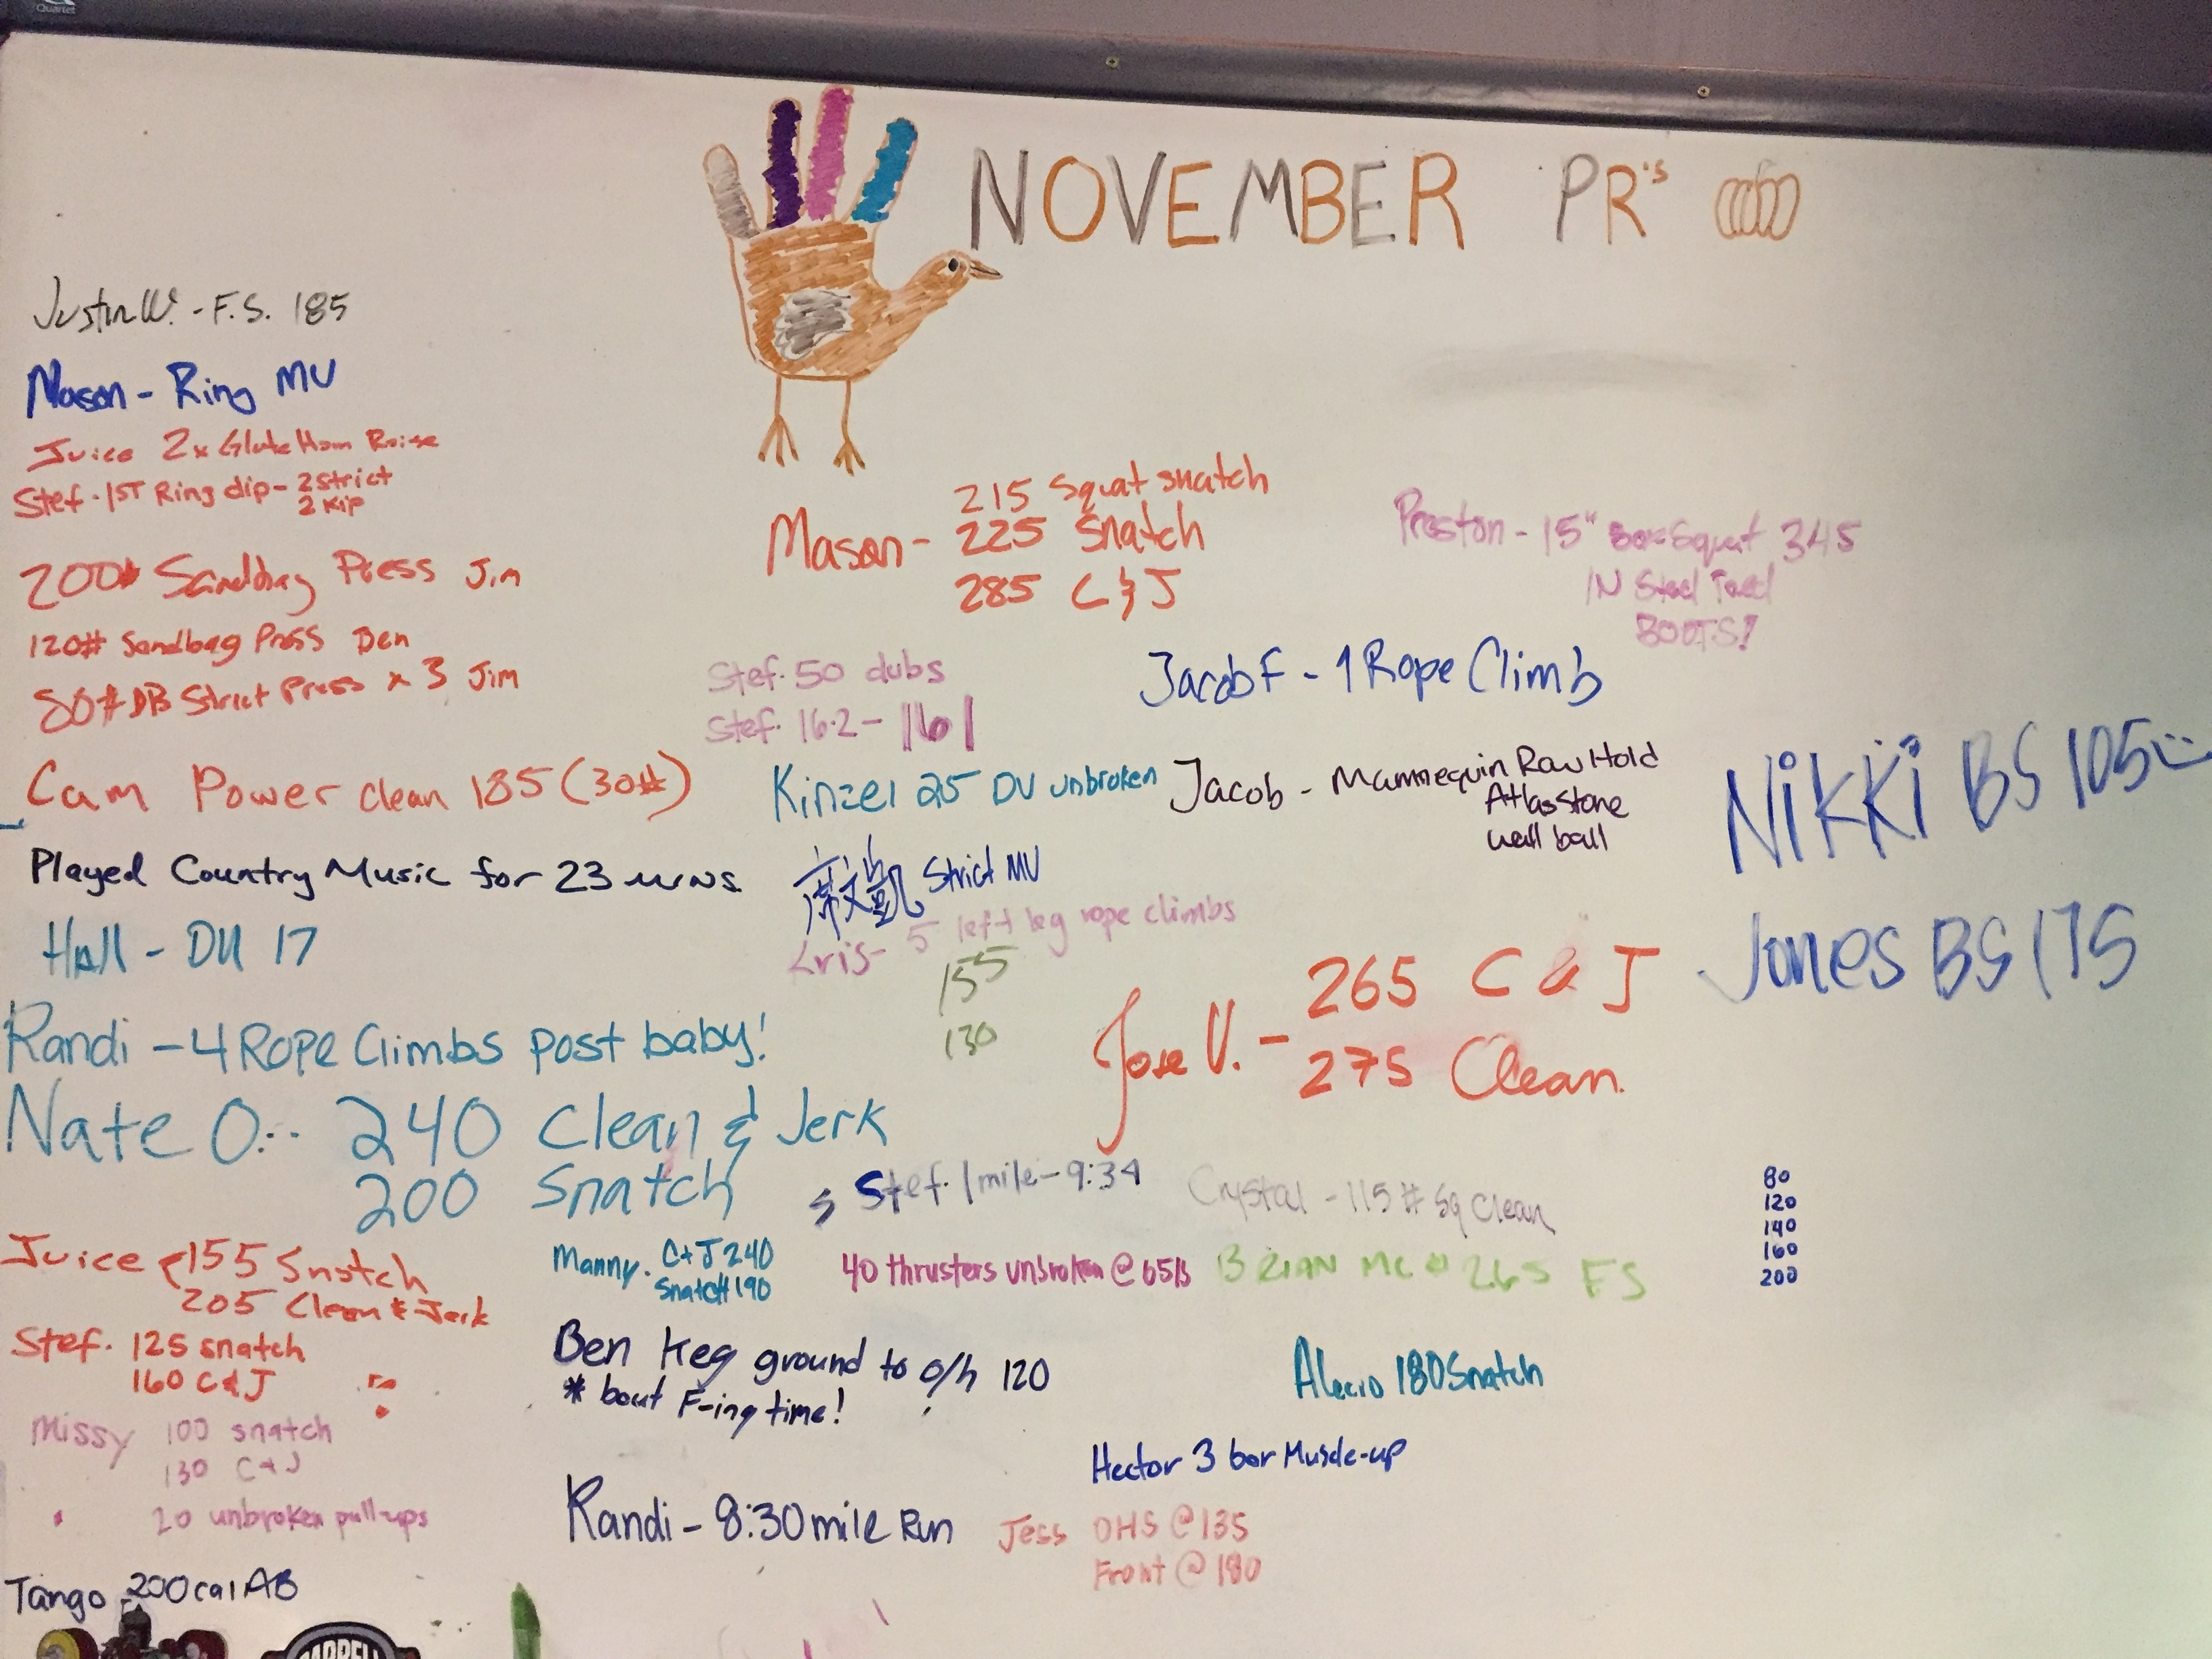 Quartet
NOVEMBER PR's
Justin W. - F.S. 185
Mason - Ring MU
Juice 2x Glute Ham Raise
Stef. 1ST Ring dip - 2 Strict
2 Kip
200# Sandbag Press Jim
120# Sandbag Press Ben
80# DB Strict Press x 3 Jim
Cam Power clean 185 (30#)
Played Country Music for 23 mins
Hall - DU 17
Randi - 4 Rope Climbs post baby!
Nate O. - 240 Clean & Jerk
200 Snatch
Juice 155 Snatch
205 Clean & Jerk
Stef. 125 snatch
160 C & J
Missy 100 snatch
130 C + J
20 unbroken pull-ups
Tango 200 cal AB
Mason - 215 Squat snatch
225 Snatch
285 C & J
Stef. 50 dubs
Stef. 16.2 - 161
Kinzel 25 DU unbroken
凱 Strict MU
Kris - 5 left leg rope climbs
155
130
Stef. 1 mile - 9:34
Manny. C + J 240
Snatch 190
40 thrusters unbroken @ 65lb
Ben Keg ground to o/h 120
* bout F-ing time!
Randi - 8:30 mile Run
Preston - 15" Box Squat 345
IN Steel Toed
BOOTS!
Jacob F - 1 Rope Climb
Jacob - Mannequin Raw Hold
Atlas Stone
wall ball
Jose V. - 265 C & J
275 Clean.
Crystal - 115# Sq Clean
BRIAN MC 265 FS
Alecio 180 Snatch
Hector 3 bar Muscle-up
Jess OHS @ 135
Front @ 180
Nikki BS 105
Jones BS 175
80
120
140
160
200